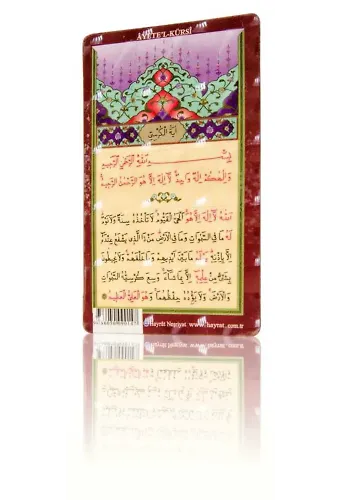 ÂYETE'L-KÜRSÎ
اٰيَةُ الْكُرْسِيّ
بِسْــــمِ اللّٰهِ الرَّحْمٰنِ الرَّحِيمِ
وَاِلٰهُكُمْ اِلٰهٌ وَاحِدٌ لَٓا اِلٰهَ اِلَّا هُوَ الرَّحْمٰنُ الرَّحِيمُ
اَللّٰهُ لَٓا اِلٰهَ اِلَّا هُوَ اَلْحَىُّ الْقَيُّومُ لَا تَأْخُذُهُ سِنَةٌ وَلَا نَوْمٌ
لَهُ مَا فِى السَّمٰوَاتِ وَمَا فِى الْاَرْضِ مَنْ ذَا الَّذِى يَشْفَعُ عِنْدَهُ
اِلَّا بِاِذْنِهِ يَعْلَمُ مَا بَيْنَ اَيْدِيهِمْ وَمَا خَلْفَهُمْ وَلَا يُحِيطُونَ
بِشَىْءٍ مِنْ عِلْمِهِ اِلَّا بِمَا شَٓاءَ وَسِعَ كُرْسِيُّهُ السَّمٰوَاتِ
وَالْاَرْضَ وَلَا يَؤُدُهُ حِفْظُهُمَا وَهُوَ الْعَلِىُّ الْعَظِيمُ
Hayrât Neşriyat www.hayrat.com.tr